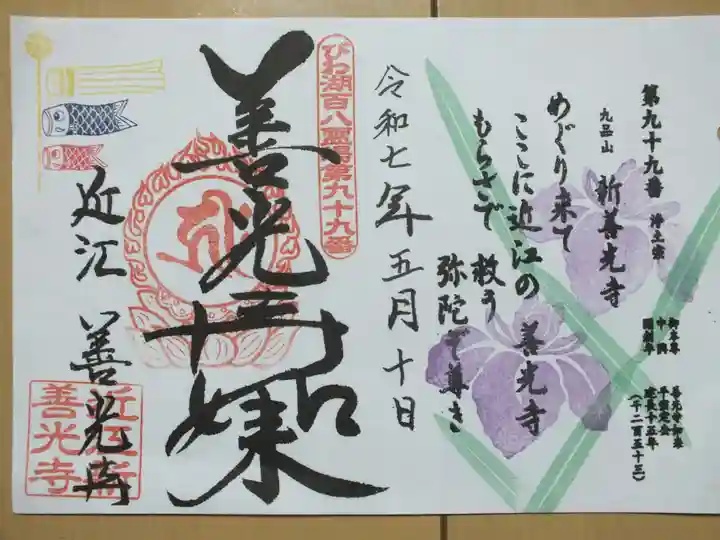 第九十九番 浄土宗
九品山 新善光寺
めぐり来て
ここに近江の 善光寺
もらさで 救う
弥陀ぞ尊き
御本尊 善光寺如来
中興
開創年
(千二百五十三)
令和七年五月十日
びわ湖百八霊場第九十九番
善光寺如来
近江 善光寺
近江新
善光寺